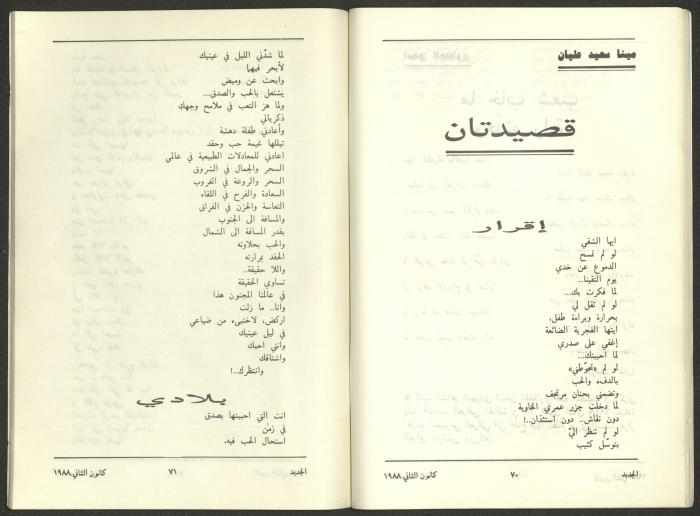 مينا سعيد عليان
قصيدتان
إقرار
ايها الشقي
لو لم تمسح
الدموع عن خدي
يوم التقينا..
لما فكرت بك...
لو لم تقل لي
بحرارة وبراءة طفل،
ايتها الغجرية الضائعة
إغفي على صدري
لما احببتك...
لو لم «تحوّطني»
بالدفء والحب
وتضمني بحنان مرتجف
لما دخلت جزر عمري الخاوية
دون نقاش.. دون استئذان..!
لو لم تنظر اليّ
بتوسّل كئيب
الجديد ٧٠ كانون الثاني ١٩٨٨
لما شدّني الليل في عينيك
لأبحر فيهما
وابحث عن وميض
يشتعل بالحب والصدق...
ولما هز التعب في ملامح وجهك
ذكرياتي
وأعادني طفلة دهشة
تبللها غيمة حب وحقد
اعادني للمعادلات الطبيعية في عالمي
السحر والجمال في الشروق
السحر والروعة في الغروب
السعادة والفرح في اللقاء
التعاسة والحزن في الفراق
والمسافة الى الجنوب
بقدر المسافة الى الشمال
والحب بحلاوته
الحقد بمرارته
واللا حقيقة..
تساوي الحقيقة
في عالمنا المجنون هذا
وأنا.. ما زلت
اركض، لاختبىء من ضياعي
في ليل عينيك
وانني احبك
واشتاقك
وانتظرك..!
بلادي
انت التي احببتها بصدق
في زمن
استحال الحب فيه.
الجديد ٧١ كانون الثاني ١٩٨٨